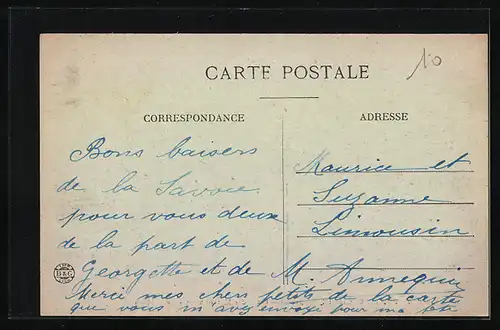 10
CARTE POSTALE
CORRESPONDANCE
ADRESSE
Bons baisers
de la Savoie
pour vous deux
de la part de
Georgette et de M. Annequin
Merci mes chers petits de la carte
que vous m'avez envoyé pour ma fête
Maurice et
Suzanne
Limousin
B & G